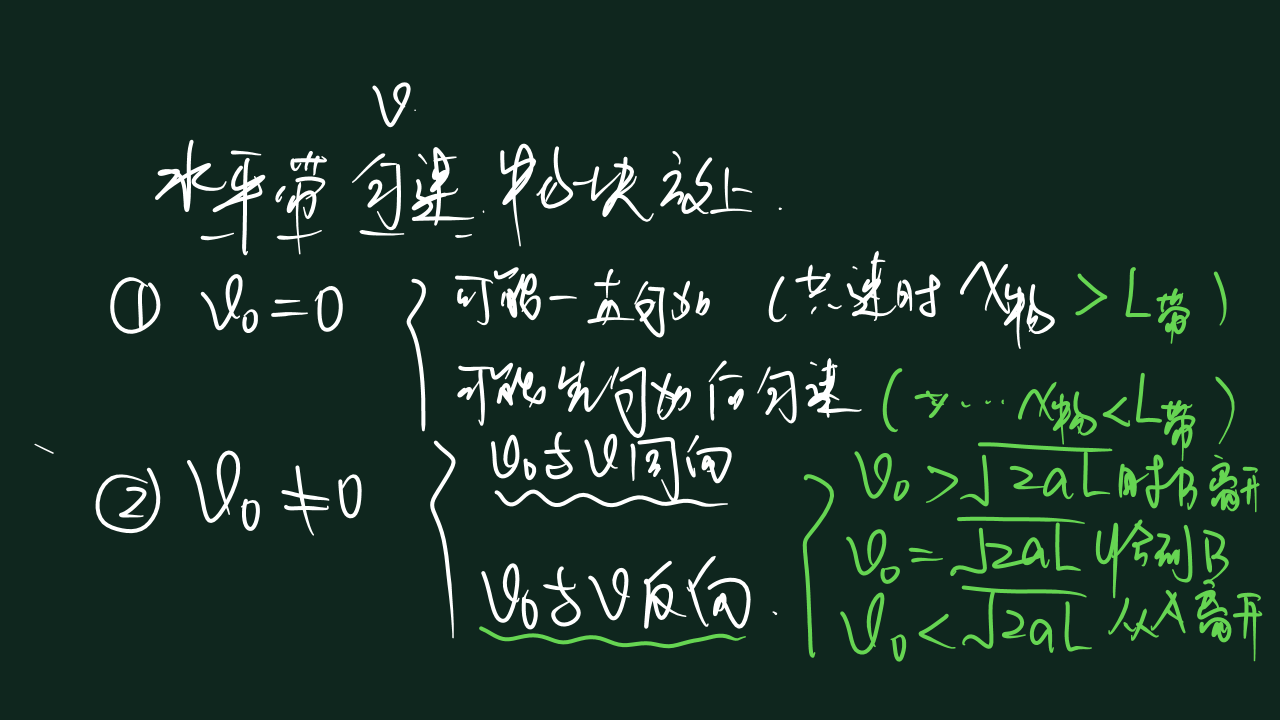 v
水平带匀速.物块放上.
① v₀=0 { 可能一直匀加 (共速时 x物 > L带)
可能先匀加后匀速 ( … x物<L带)
② v₀≠0 { v₀与v同向
v₀与v反向. { v₀>√2aL 时B离开
v₀=√2aL 恰到B
v₀<√2aL 从A离开